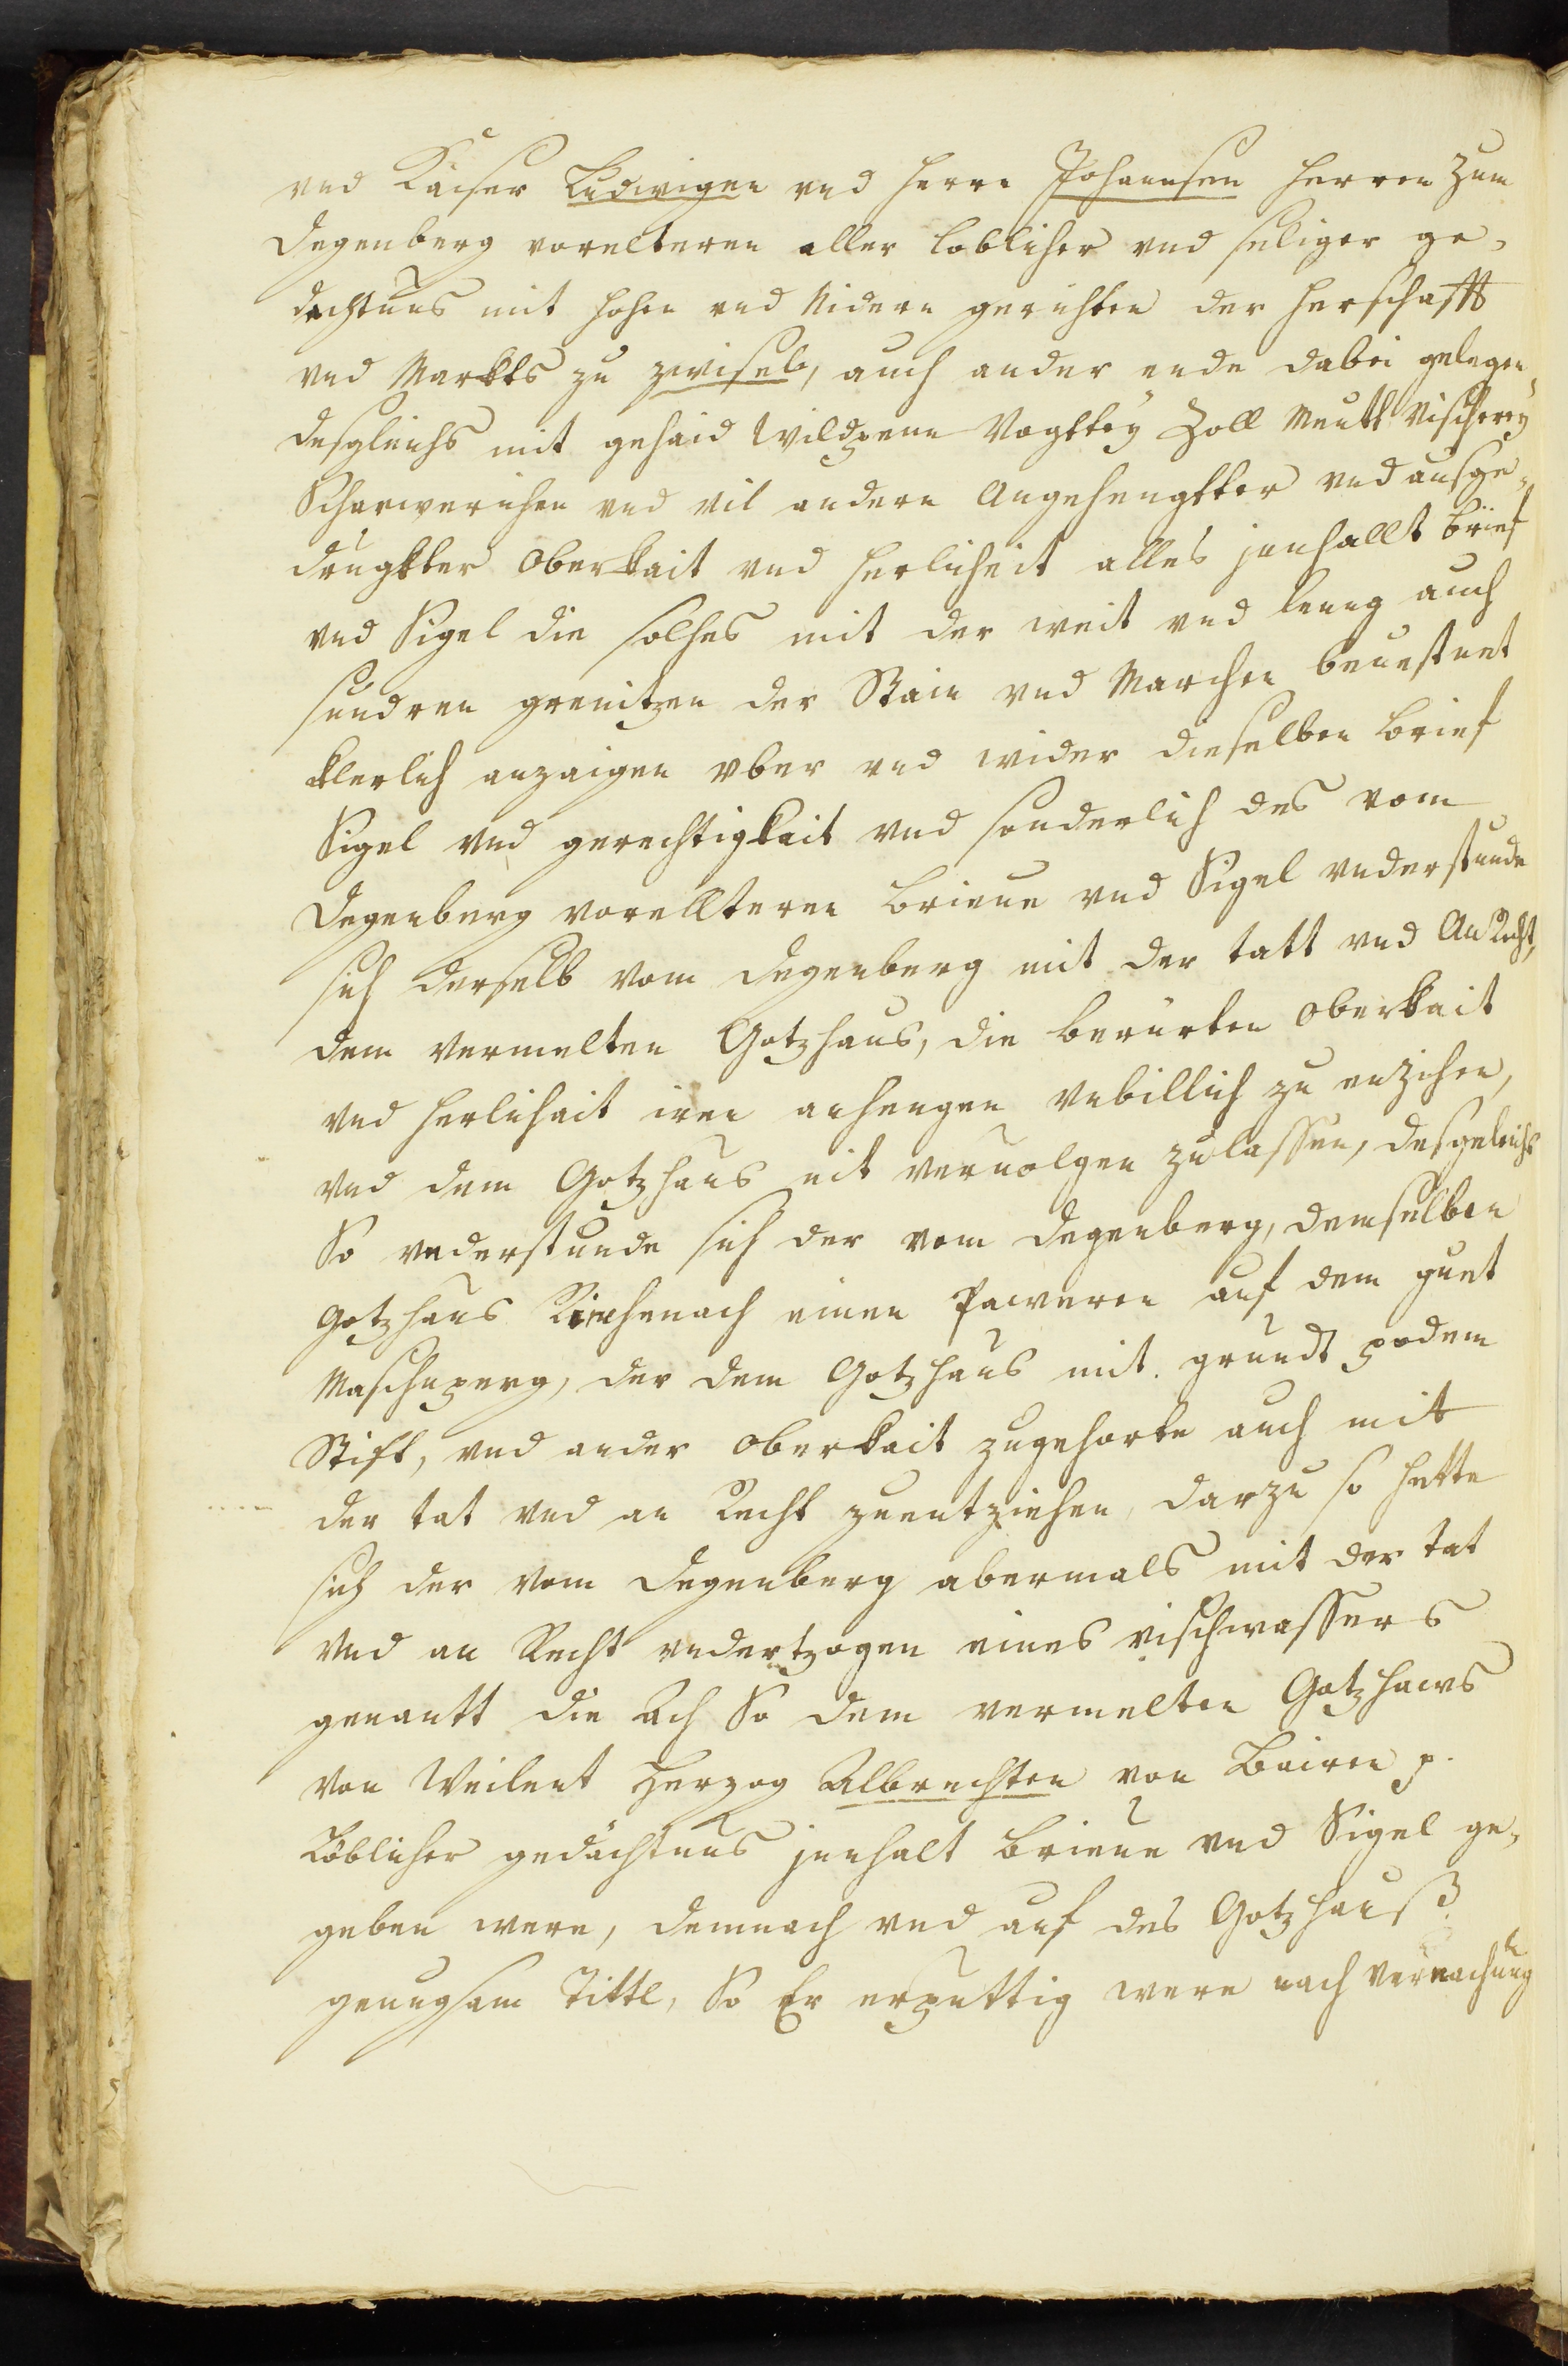 vnd Kaiser Ludwigen vnd herrn Johannsen herren zum
Degenberg vorelteren aller loblicher vnd seliger ge-
dechtnus mit hohen vnd Nidern gerichten der herschafft
vnd Markts zu zwisel, auch ander ende dabei gelegen,
desgleichs mit gehaid Wildpenn Vogttey Zoll Meutt Vischerey
Scharwerichen vnd vil andern Angehengkter vnd ausge-
drugkter Oberkait vnd herlicheit alles jnnhallt brief
vnd Sigel die solhes mit der weit vnd leng auch
sundren grenitzen der Rain vnd Marchen beuestnet
klerlich anzaigen vber vnd wider dieselben brief
Sigel vnd gerechtigkait vnd sonderlich des vom
Degenberg vorellteren brieue vnd Sigel vnderstunde
sich derselb vom Degenberg mit der tatt vnd An Recht,
dem vermelten Gotzhaus, die berurten Oberkait
vnd herlichait iren anhengen vnbillich zu enzichen,
vnd dem Gotzhaus nit veruolgen zulassen, desgeleichs
So vnderstunde sich der vom Degenberg, demselben
Gotzhaus Rinchenach einen Paweren auf dem guet
Maschnperg, der dem Gotzhaus mit grundt podem
Stift, vnd ander Oberkait zugehorte auch mit
der tat vnd an Recht zuentziehen, darzu so hette
sich der vom Degenberg abermals mit der tat
vnd an Recht vndertzogen eines vischwassers
genantt die Ach So dem vermelten Gotzhaws
von Weilent Herzog Albrechten von Bairen p.
Löblicher gedächtnus jnnhalt brieue vnd Sigel ge-
geben were, demnach vnd auf des Gotzhauß
genugsam Titte, So Er erputtig were nach